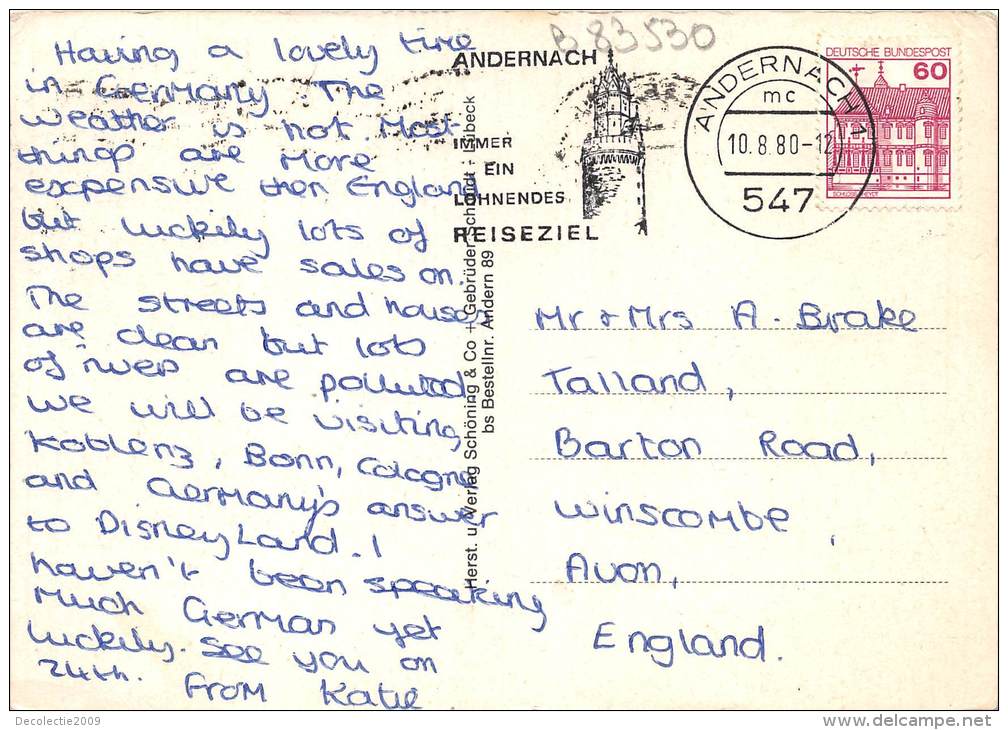 Having a lovely time
in Germany The
weather is hot Most
things are More
expensive then England
but luckily lots of
shops have sales on.
The streets and houses
are clean but lots
of rivers are polluted
we will be visiting
Koblenz, Bonn, Cologne
and Germany's answer
to DisneyLand. I
haven't been speaking
Much German yet
luckily. See you on
24th. From Katie
B 83530
ANDERNACH
IMMER
EIN
LOHNENDES
REISEZIEL
ANDERNACH 1
mc
10.8.80-12
547
DEUTSCHE BUNDESPOST
60
Herst. u. Verlag Schöning & Co + Gebrüder Schmidt - Lübeck
bs Bestellnr. Andern 89
Mr & Mrs A. Brake
Talland,
Barton Road,
Winscombe,
Avon,
England.
Decolectie2009
delcampe.net